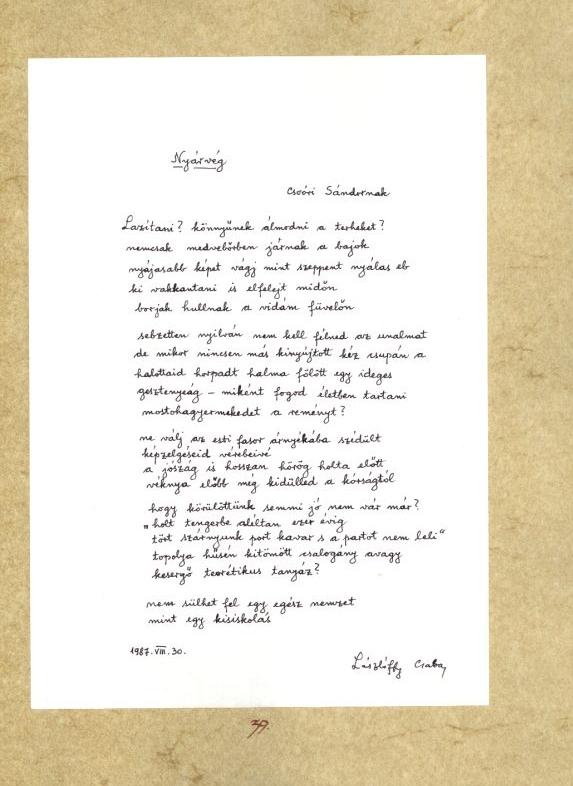 Nyárvég
Csoóri Sándornak
Lazítani? könnyűnek álmodni a terheket?
nemcsak medvebőrben járnak a bajok
nyájasabb képet vágj mint szeppent nyálas eb
ki vakkantani is elfelejt midőn
borjak hullnak a vidám füvelőn
sebzetten nyilván nem kell félned az unalmat
de mikor nincsen más kinyújtott kéz csupán a
halottaid horpadt halma fölött egy ideges
gesztenyeág – miként fogod életben tartani
mostohagyermekedet a reményt?
ne válj az esti fasor árnyékába szédült
képzelgéseid vérebeivé
a jószág is hosszan hörög holta előtt
véknya előbb még kidülled a kórságtól
hogy körülöttünk semmi jó nem vár már?
„holt tengerbe aléltan ezer évig
tört szárnyunk port kavar s a partot nem leli"
topolya hűsén kitömött csalogány avagy
kesergő teorétikus tanyáz?
nem sülhet fel egy egész nemzet
mint egy kisiskolás
1987. VIII. 30.
Lászlóffy Csaba
37.